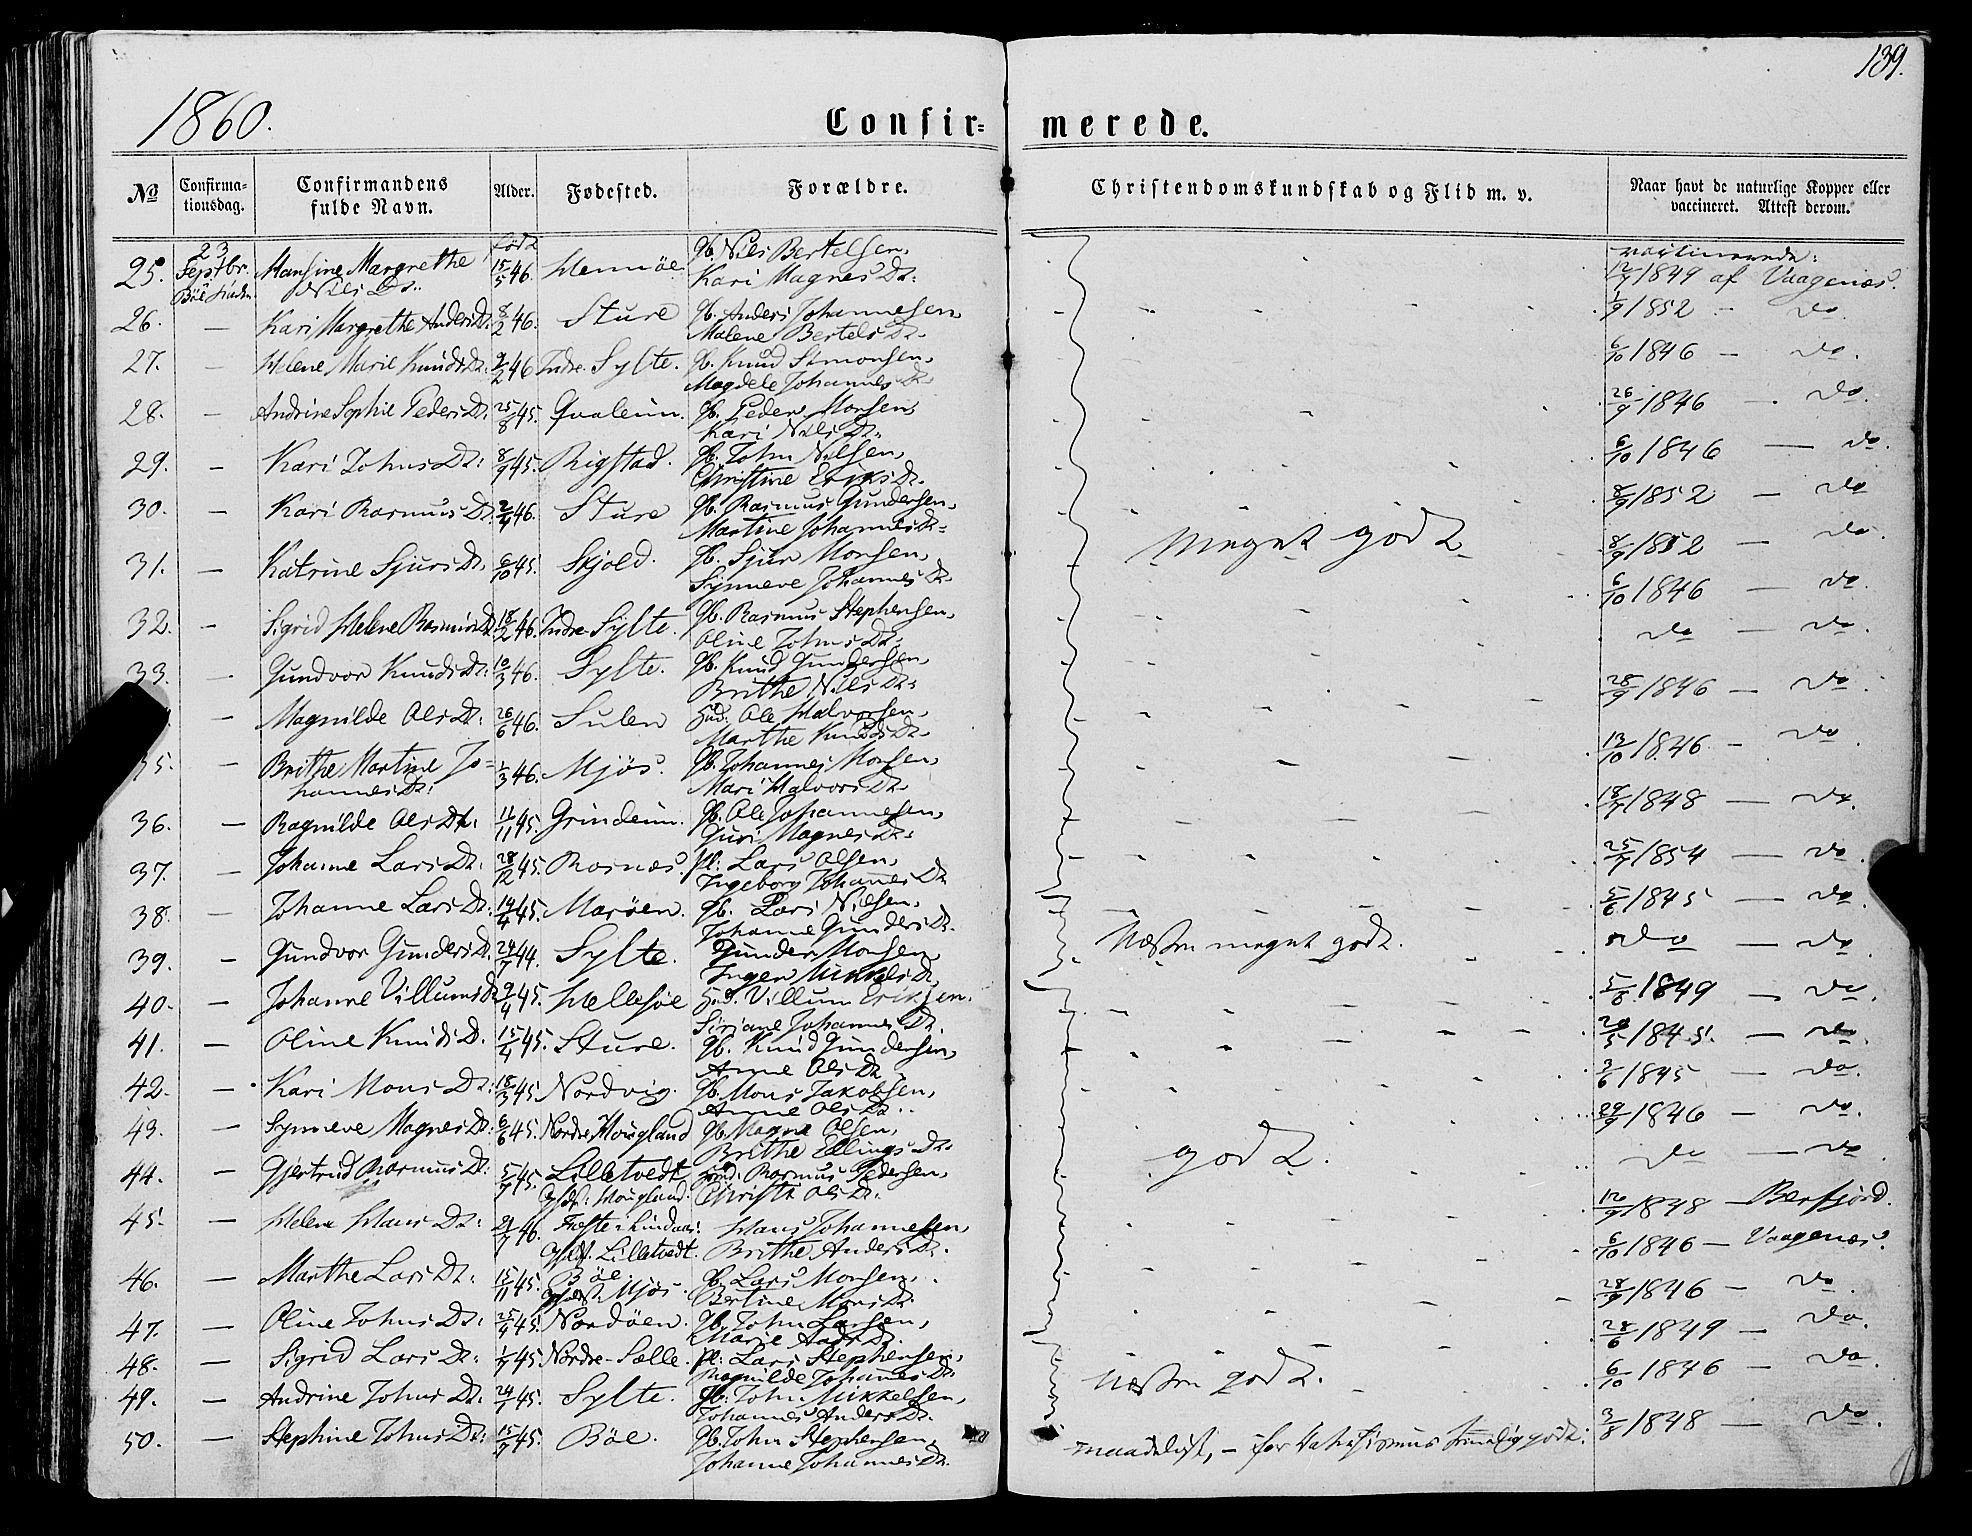 139.
1860.
Confir= merede.
No Confirma=tionsdag. Confirmandens fulde Navn. Alder. Fødested. Forældre. Christendomskundskab og Flid m. v. Naar havt de naturlige Kopper eller vaccineret. Attest derom.
født vaccinerede:
25. 23 Septbr. Hansine Margrethe Nils Dt. 15/5 46. Hennøe Gb. Nils Bertelsen, Kari Magnes Dt: 1849 af Vaagenæs.
26. — Kari Margrethe Anders Dt. 8/2 46. Sture Gb. Anders Johannesen, Malene Bertels Dt. 1/9 1852 – do.
27. — Helene Marie Knuds Dt. 9/2 46 Indre Sylte. Gb. Knud Simonsen, Magdele Johannes Dt 6/10 1846 – do.
28. — Andrine Sophie Peders Dt. 25/8 45. Qvaleim. Gb. Peder Monsen, Kari Nils Dt: 26/9 1846 — do.
29. — Kari Johns Dt: 8/9 45. Rigstad. Gb. John Nilsen, Christine Eriks Dt. 6/10 1846 — do.
30. — Kari Rasmus Dt. 2/4 46. Sture Gb. Rasmus Gundersen, Martine Johannes Dt: 8/9 1852 — do
31. — Katrine Sjurs Dt. 6/10 45. Skjold. Gb. Sjur Monsen, Synneve Johannes Dt. Meget godt 8/9 1852 — do.
32. — Sigrid Helene Rasmus Dt 18/2 46. Indre Sylte. Gb. Rasmus Stephensen, Oline Johns Dt. 6/10 1846 — do
33. — Gundvor Knuds Dt: 10/3 46. Sylte. Gb. Knud Gundersen, Brithe Nils Dt: do — do.
— Magnilde Ols Dt: 26/6 46. Sulen Hud: Ole Halvorsen, Marthe Knuds Dt. 28/9 1846 — do.
35. — Brithe Martine Jo=hannes Dt: 1/3 46. Mjøs. Gb. Johannes Monsen, Mari Halvors Dt. 13/10 1846 – do
36. — Ragnilde Ols Dt. 11/11 45. Grindeim. Gb. Ole Johannesen, Guri Magnes Dt: 18/7 1848 — do.
37. — Johanne Lars Dt: 28/12 45. Rosnæs. Pl: Lars Olsen, Ingeborg Johannes Dt 25/7 1854 — do.
38. — Johanne Lars Dt. 19/4 45. Marøen. Gb. Lars Nilsen, Johanne Gunders Dt. 5/6 1845 — do.
39. — Gundvor Gunders Dt 24/7 44. Sylte. Gunder Monsen, Inger Mikkels Dt. Næsten meget godt. do — do.
40. — Johanne Villums Dt 9/4 45. Hellesøe Hud. Villum Eriksen, Siriane Johannes Dt. 5/8 1849 — do.
41. — Oline Knuds Dt. 15/4 45. Sture. Gb. Knud Gundersen, Anne Ols Dt 20/5 1845. — do
42. — Kari Mons Dt: 18/3 45. Nordvig. Gb. Mons Jakobsen, Anne Ols Dt. 3/6 1845 — do.
43. — Synneve Magnes Dt: 6/6 45. Nordre Mougland Gb. Magne Olsen, Brithe Ellings Dt. 29/9 1846 — do.
44. — Gjertrud Rasmus Dt: 5/7 45. Lilletvedt Opf: Mougland. Hud: Rasmus Pedersen, Christi Ols Dt: godt. do — do
45. — Helene Hans Dt: 46. Fæste i Lindaas: Opf. Lilletvedt. Hans Johannesen, Brithe Anders Dt. 12/9 1848 — Berfjord.
46. — Marthe Lars Dt: 15/11 45. Bøe Mjøs. Gb. Lars Monsen, Bertine Mons Dt. 6/10 1846 — Vaagenæs.
47. — Oline Johns Dt: 25/4 45. Nordøen. Gb. John Larsen, Marie Dt. 28/9 1846 — do.
48. — Sigrid Lars Dt: 1/7 45. Nordre-Sælle. Pl: Lars Stephensen, Magnilde Johannes Dt. 28/6 1849 — do.
49. — Andrine Johns Dt: 24/7 45. Sylte. Gb: John Mikkelsen, Johanne Anders Dt. Næsten godt. 6/10 1846 — do.
50. — Stephine Johns Dt: 15/7 45. Bøe. Gb. John Stephensen, Johanne Johannes Dt. maadeligt, – for temmelig godt. 3/8 1848 — do.